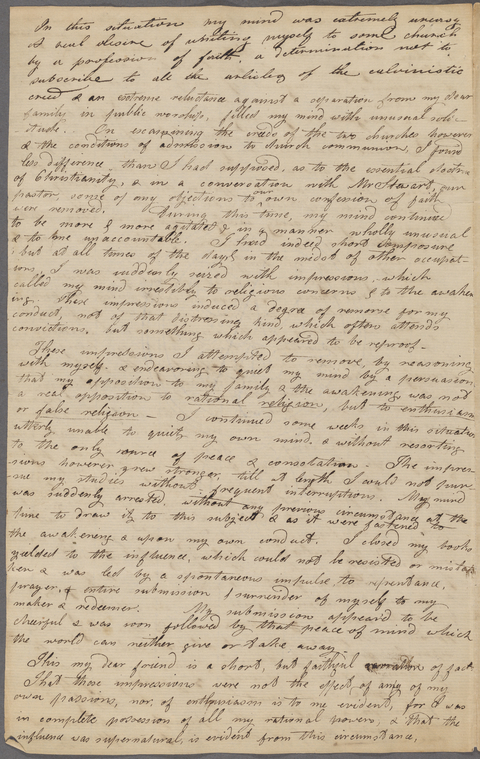 In this situation my mind was extremely uneasy
A real desire of uniting myself to some church
by a profession of faith, a determination not to
subscribe to all the articles of the calvinistic
creed & an extreme reluctance against a separation from my dear
family in public worship, filled my mind with unusual soli-
tude. In examining the creeds of the two churches however
& the conditions of admission to church communion, I found
less difference than I had supposed, as to the essential doctrin
of Christianity, & in a conversation with Mr Stewart, our
pastor, some of my objections to own confession of faith
were removed. During this time, my mind continued
to be more & more agitated & in a manner wholly unusual
& to me unaccountable. I had indeed short composure
but at all times of the day & in the midst of other occupat-
ions, I was suddenly seized with impressions, which
called my mind irresistibly to religious concerns & to the awaken
ing. These impressions induced a degree of remorse for my
conduct, not of that distressing kind, which often attends
convictions, but something which appeared to be reproof—
These impressions I attempted to remove, by reasoning
with myself, & endeavoring to quiet my mind by a persuasion,
that my opposition to my family & the awakening was not
a real opposition to rational religion, but to enthusiasm
or false religion— I continued some weeks in this situation
utterly unable to quiet my own mind, & without resorting
to the only source of peace & consolation. The impres-
sions however grew stronger, till at length I could not pur-
sue my studies without frequent interruptions. My mind
was suddenly arrested, without any previous circumstance at the
time to draw it to this subject & as it were fastened to
the awakening & upon my own conduct. I closed my books
yielded to the influence, which could not be resisted or mistak
ken & was led by a spontaneous impulse to repentance,
prayer, & entire submission & surrender of myself to my
maker & redeemer. My submission appeared to be
cheerful & was soon followed by that peace of mind which
the world can neither give or take away
This my dear friend is a short, but faithful narration of fact
That those impressions were not the effect of any of my
own passions, nor of enthusiasm is to me evident, for I was
in complete possession of all my rational powers, & that the
influence was supernatural, is evident from this circumstance,